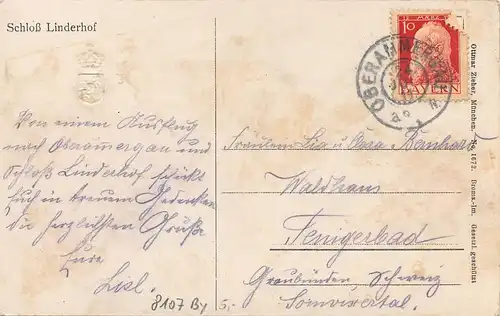 Schloß Linderhof
Von einem Ausflug
nach Oberammergau und
Schloß Linderhof schickt
Euch in treuem Gedenken
die herzlichsten Grüße
Eure
Lisl.
8107 By 5,-
10
BAYERN
OBERAMMERGAU
Fräulein Lia u.
Waldhaus
Fenigerbad
Graubünden, Schweiz
Somvixertal.
Ottmar Zieher, München. No. 1672. Broma-Im. Gesetzl. geschützt